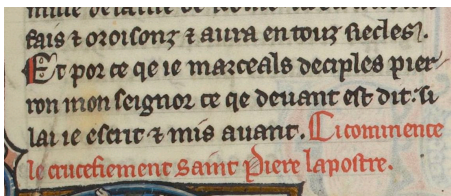 fais ⁊ oroisonz ⁊ aura en touz siecles.
Et por ce qe ie marceals deciples pier/
ron mon seignor ce qe deuant est dit. si
lai ie escrit ⁊ mis auant. Ci comence
le crucefiement saint Piere lapostre.